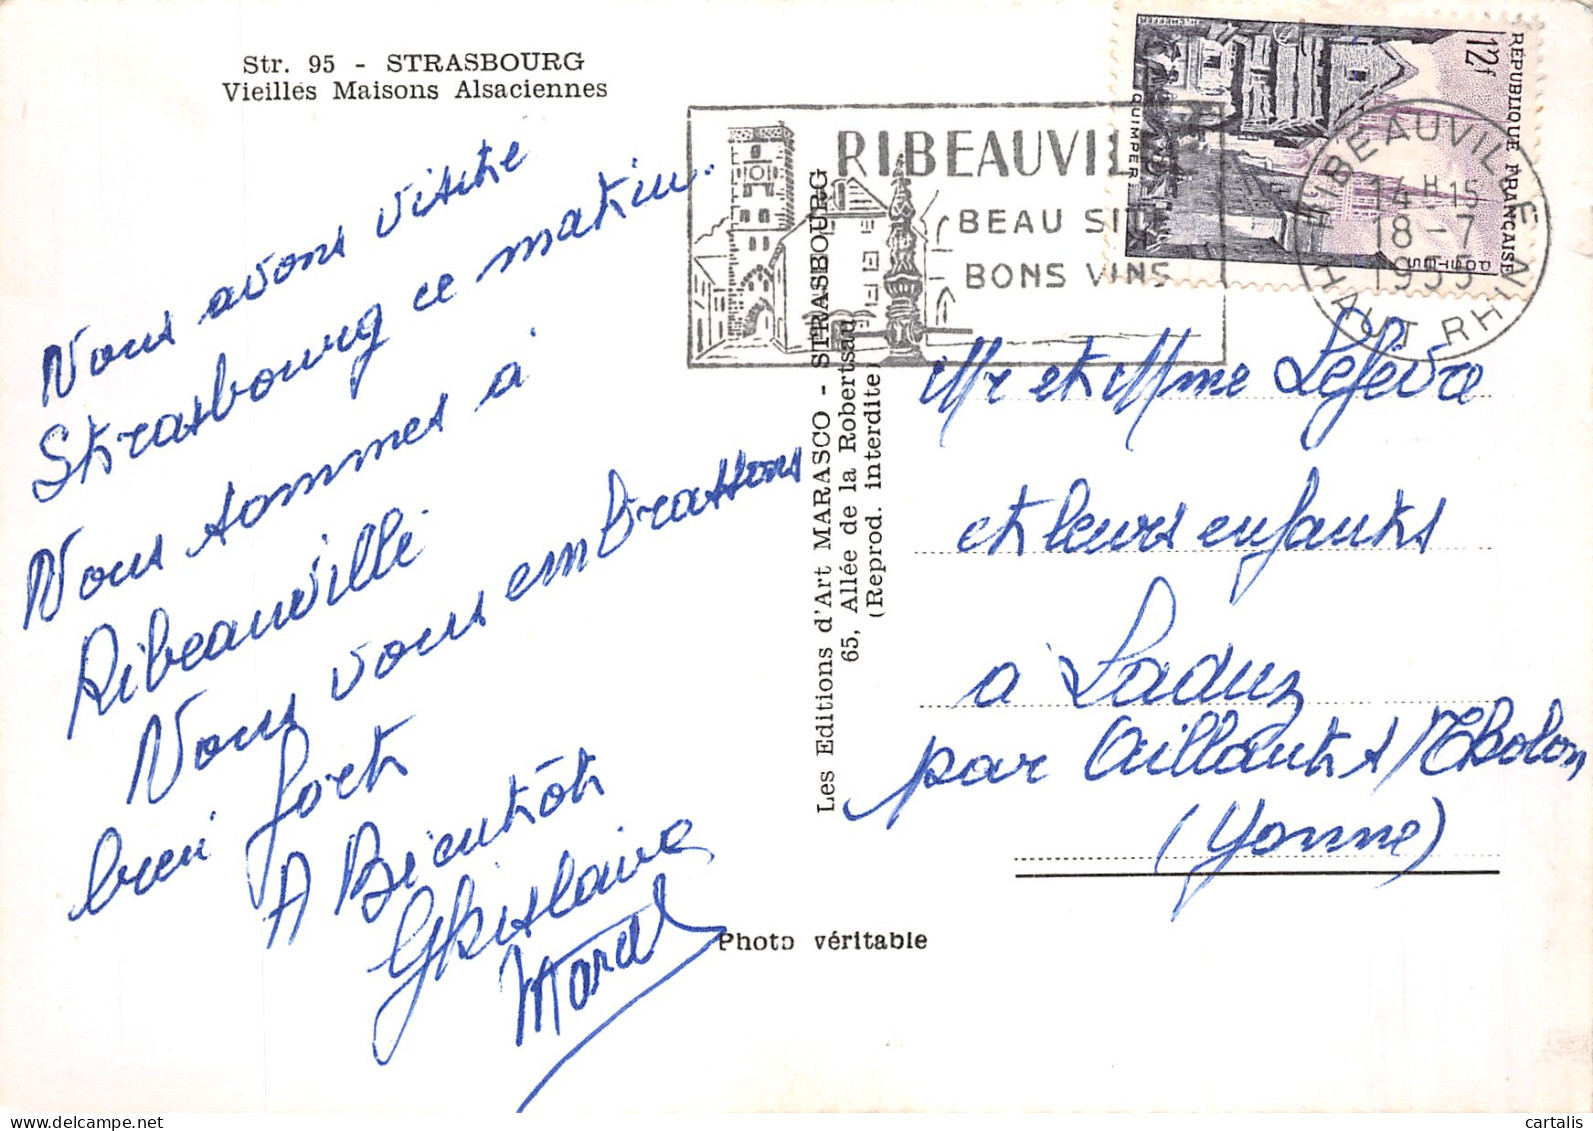 Str. 95 - STRASBOURG
Vieilles Maisons Alsaciennes
Nous avons visité
Strasbourg ce matin.
Nous sommes à
Ribeauvillé
Nous vous embrassons
bien fort
A Bientôt
Ghislaine
Marcel
Les Editions d'Art MARASCO - STRASBOURG
65, Allée de la Robertsau
(Reprod. interdite)
Photo véritable
RIBEAUVIL
BEAU SITE
BONS VINS
12f
REPUBLIQUE FRANÇAISE
POSTES
QUIMPER
RIBEAUVILLE
14H15
18-7
1955
HAUT RHIN
Mr et Mme Lefèvre
et leurs enfants
à Laduz
par Aillant s/Tholon
(Yonne)
cartalis
delcampe.net